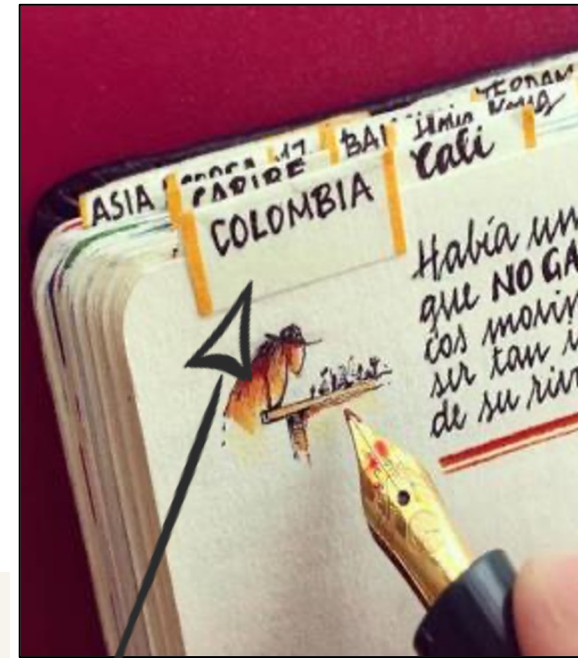 ASIA
CARIBE
COLOMBIA
BAL
Cali
Había un
que NO GA
cos movim
ser tan i
de su riv